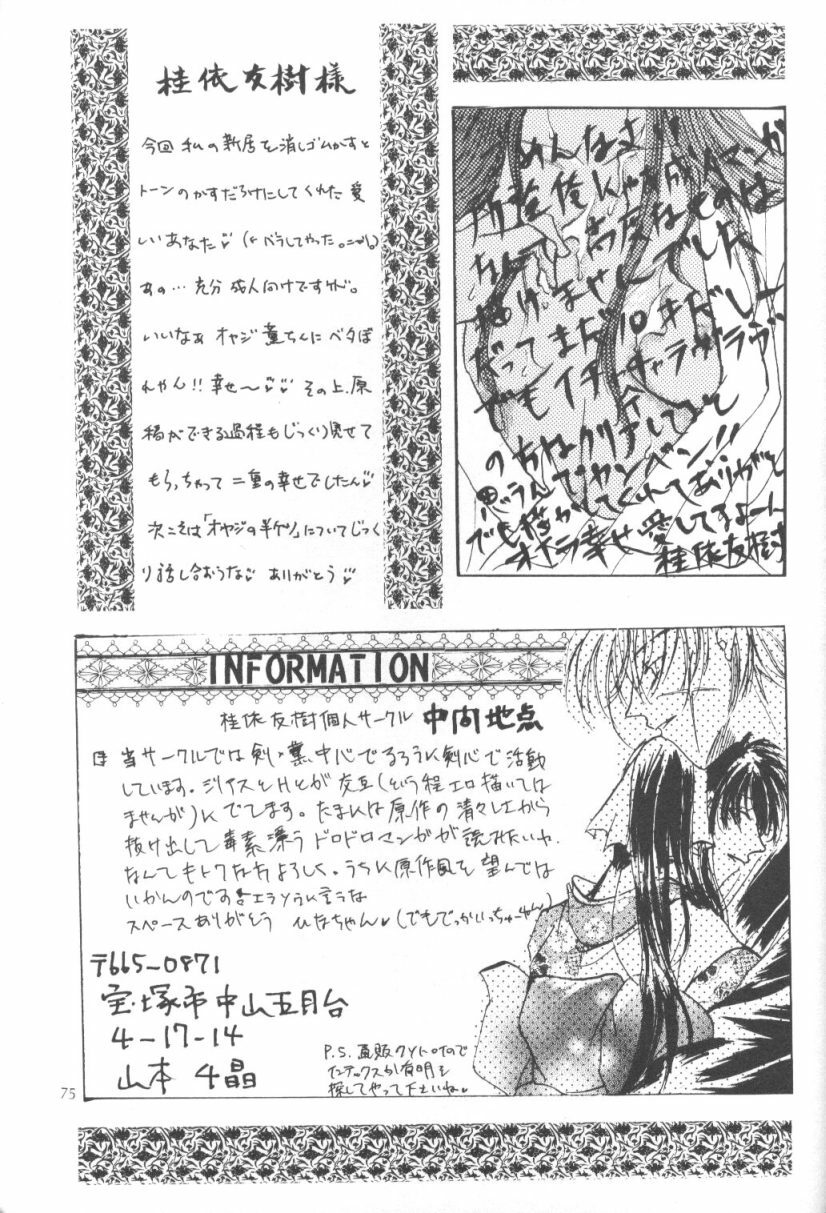 桂依友樹様
今回 私の新居を消しゴムかすと
トーンのかすだらけにしてくれた 愛
しいあなた♡ (←バラしてやった。ニヤリ)
あの… 充分 成人向けですケド。
いいなぁ オヤジ 薫ちんに ベタぼ
れやん!! 幸せ〜♡♡ その上、原
稿ができる過程もじっくり見せて
もらっちゃって 二重の幸せでしたん♡
次こそは「オヤジの半ケツ」についてじっく
り話し合おうな♡ ありがとう♡
ごめんなさい
所詮 俺にゃ 成人マンガ
なんて 高度なものは
描けませんでした
だってまだ10才だしー
でもイチャイチャラヴラヴ
のちはクリアしてると
思うんでカンベン!!
でも描かしてくれてありがと
オイラ幸せ 愛してるよーん
桂依友樹
INFORMATION
桂依友樹個人サークル 中間地点
当サークルでは剣・薫中心でるろうに剣心で活動
しています。シリアスとHとが交互(という程エロ描いては
ませんが)にでてます。たまには原作の清々しエから
抜け出して毒素漂うドロドロマンガが読みたいわ
なんてキトクな方よろしく。うちに原作風を望んでは
いかんのですよエラソうに言うな
スペースありがとう ひなちゃん♡(でもでっかいっちゅーねん)
〒665-0871
宝塚市中山五月台
4-17-14
山本 千晶
P.S. 通販ケソトOTので
インデックスか有明を
探してやって下さいね♡
75